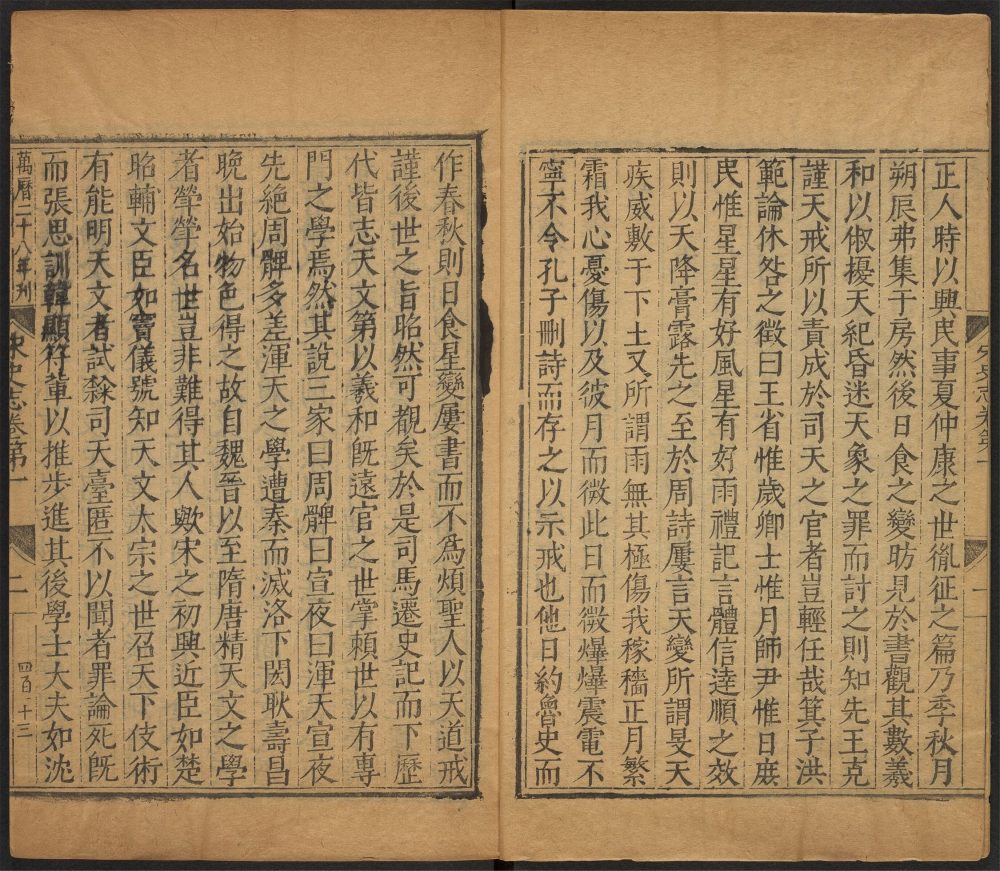 正人時以興民事夏仲康之世胤征之篇乃季秋月
朔辰弗集于房然後日食之變昉見於書觀其數羲
和以俶擾天紀昏迷天象之罪而討之則知先王克
謹天戒所以責成於司天之官者豈輕任哉箕子洪
範論休咎之徵曰王省惟歲卿士惟月師尹惟日庶
民惟星星有好風星有好雨禮記言體信達順之效
則以天降膏露先之至於周詩屢言天變所謂旻天
疾威敷于下土又所謂雨無其極傷我稼穡正月繁
霜我心憂傷以及彼月而微此日而微爆爆震電不
寧不令孔子刪詩而存之以示戒也他日約魯史而
作春秋則日食星變屢書而不爲煩聖人以天道戒
謹後世之旨昭然可覩矣於是司馬遷史記而下歷
代皆志天文第以羲和旣遠官乏世掌賴世以有專
門之學焉然其說三家曰周髀曰宣夜曰渾天宣夜
先絶周髀多差渾天之學遭秦而滅洛下閎耿壽昌
晩出始物色得之故自魏晉以至隋唐精天文之學
者犖犖名世豈非難得其人歟宋之初興近臣如楚
昭輔文臣如竇儀號知天文太宗之世召天下伎術
有能明天文者試隸司天臺匿不以聞者罪論死旣
而張思訓韓顯符輩以推步進其後學士大夫如沈
萬曆二十八年刊
宋史志卷第一
二
四百十三